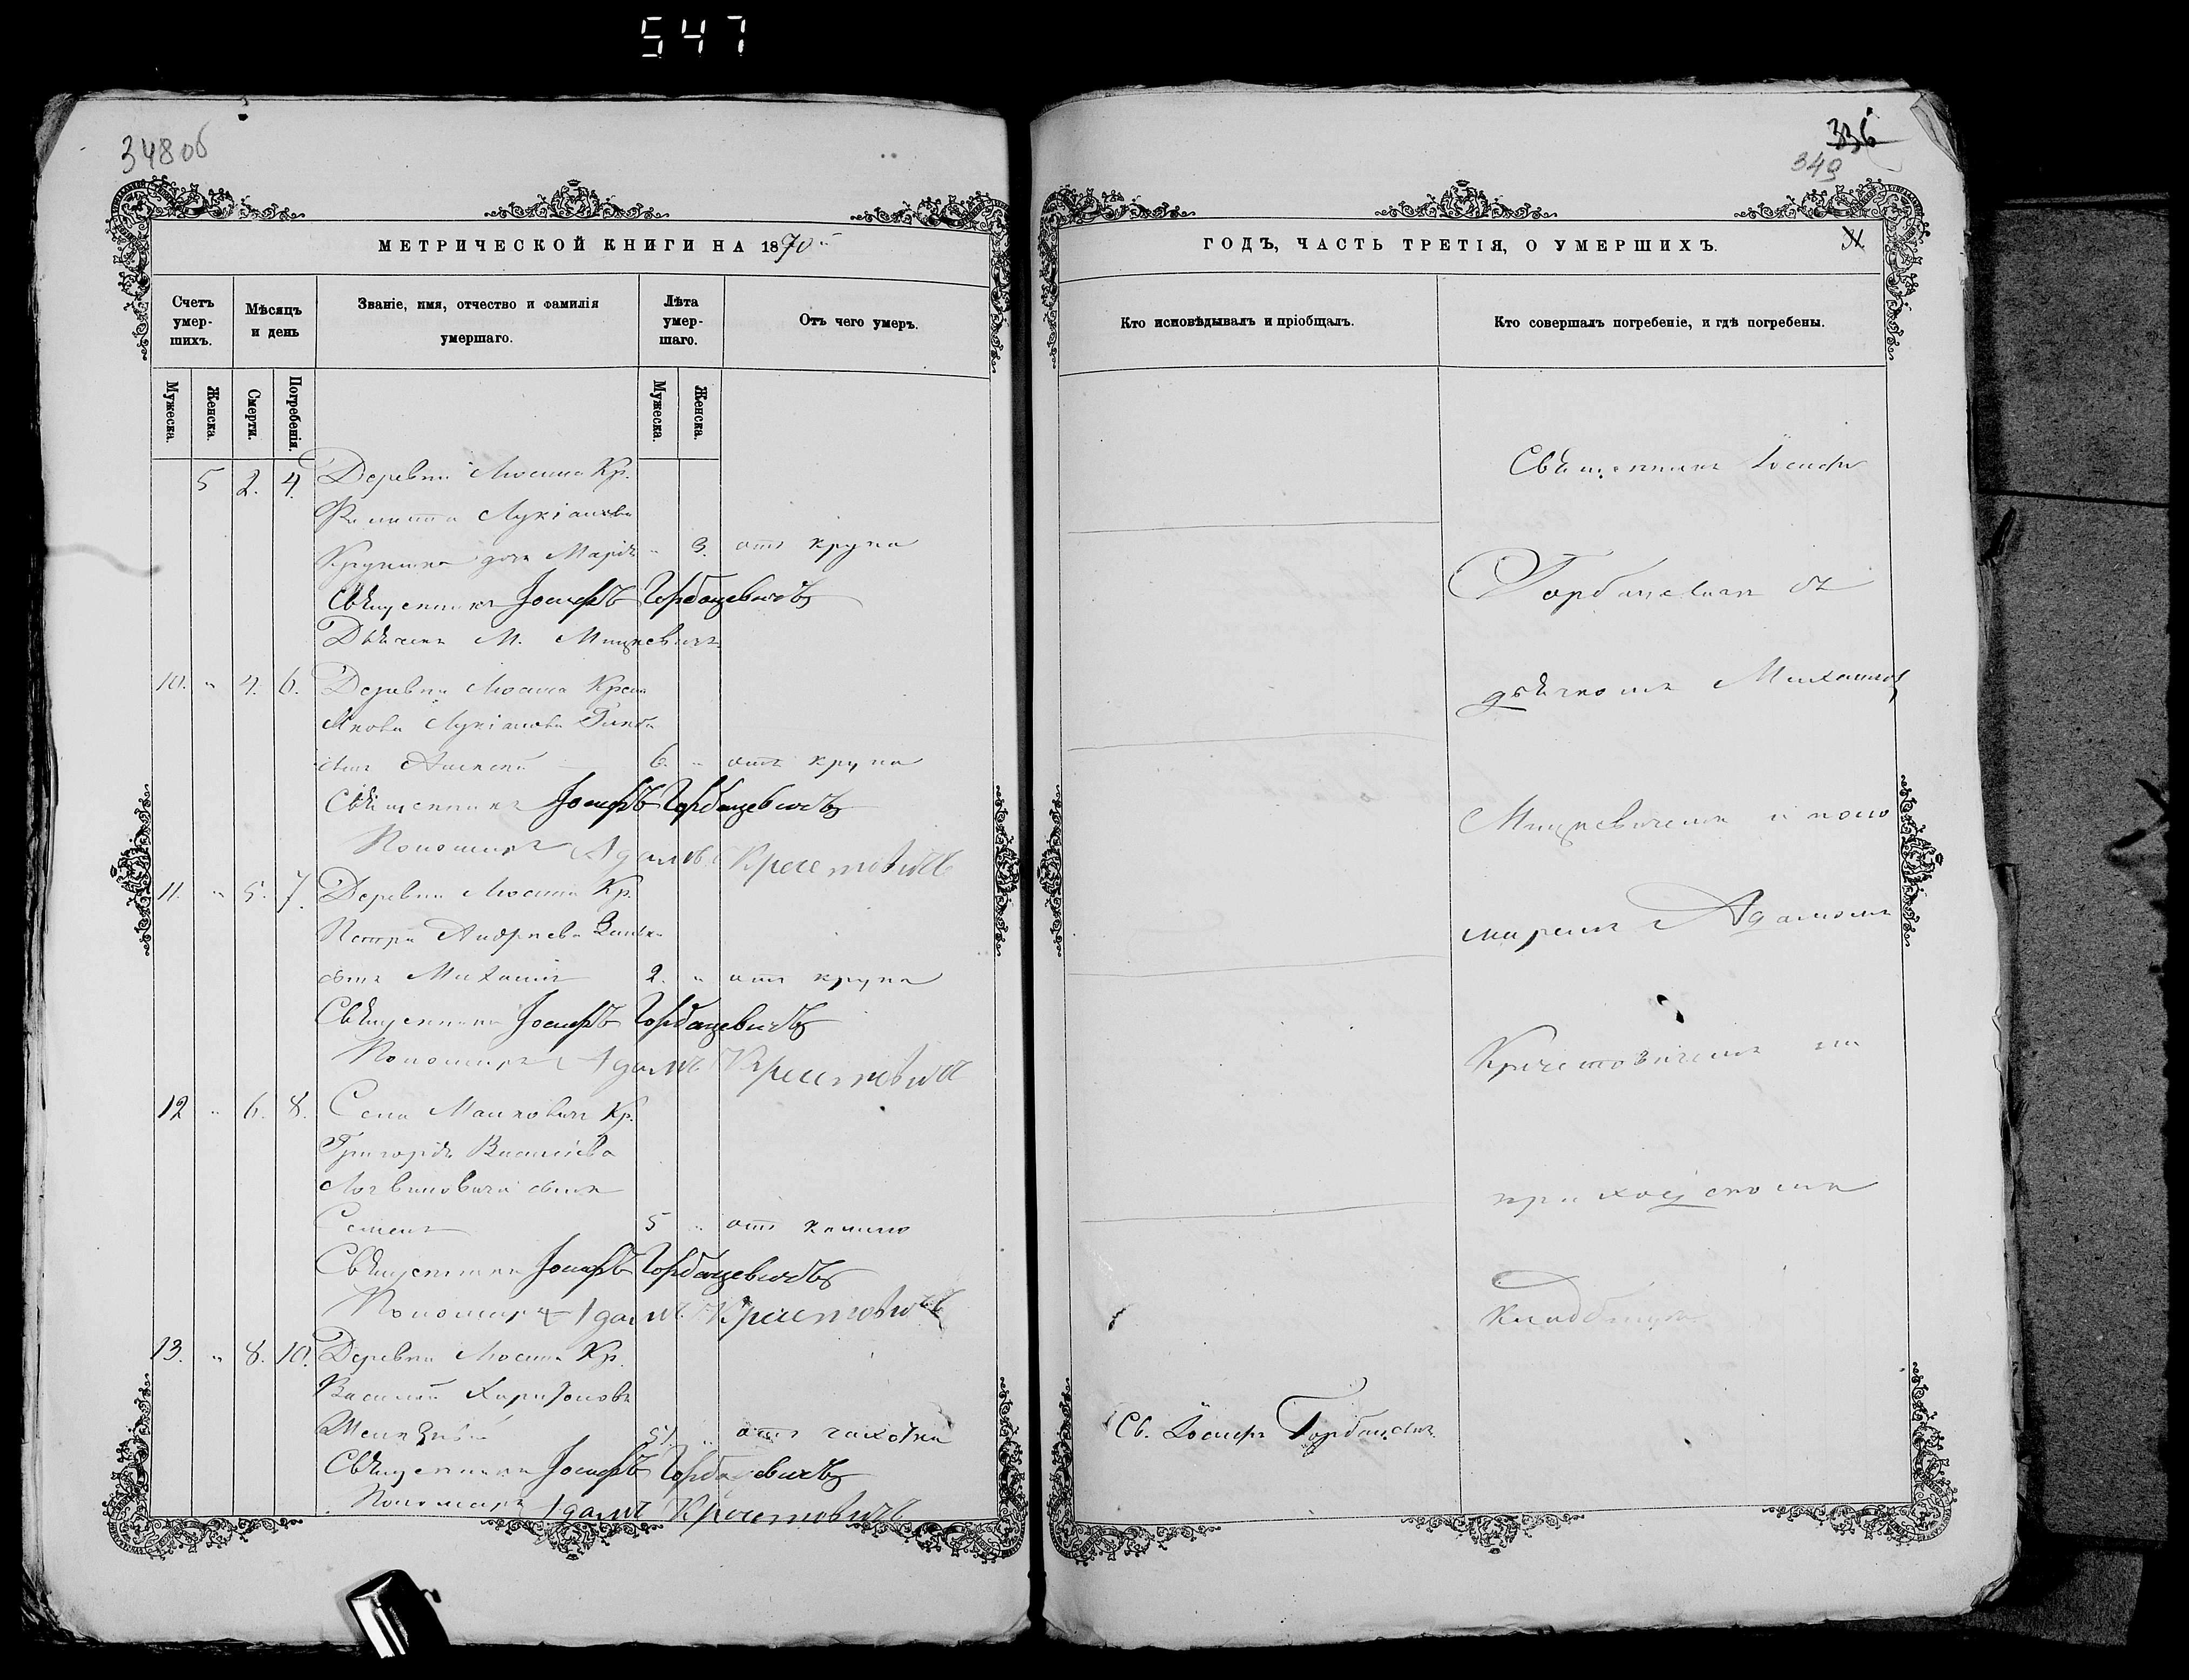 547
348об
МЕТРИЧЕСКОЙ КНИГИ НА 1870
Счетъ умер-шихъ.
Мѣсяцъ и день
Званіе, имя, отчество и фамилія умершаго.
Лѣта умер-шаго.
Отъ чего умеръ.
Мужеска.
Женска.
Смерти.
Погребенія.
Мужеска.
Женска.
5 2. 4. Деревни Люсина Кр.
Филиппа Лукіанова
дочь Марія " 3. отъ крупа
Священникъ Іосифъ Горбацевичъ
Дьячекъ М. Мицкевичъ
10. " 4. 6. Деревни Люсина Крест
Якова Лукіанова
сынъ Алексѣй 6. " отъ крупа
Священникъ Іосифъ Горбацевичъ
Пономарь Адамъ Кречетовичъ
11. " 5. 7. Деревни Люсина Кр.
Петра Андреева
сынъ Михаилъ 2. " отъ крупа
Священникъ Іосифъ Горбацевичъ
Пономарь Адамъ Кречетовичъ
12 " 6. 8. Села Малковичъ Кр.
Григорія Василіева
Логвиновича сынъ
Семенъ 5 " отъ кашлю
Священникъ Іосифъ Горбацевичъ
Пономарь Адамъ Кречетовичъ
13. " 8. 10. Деревни Люсина Кр.
Василій Харитоновъ
51. " отъ чахотки
Священникъ Іосифъ Горбацевичъ
Пономарь Адамъ Кречетовичъ
336
349
ГОДЪ, ЧАСТЬ ТРЕТІЯ, О УМЕРШИХЪ.
Кто исповѣдывалъ и пріобщалъ.
Кто совершалъ погребеніе, и гдѣ погребены.
Священникъ Іосифъ
Горбацевичъ съ
дьячкомъ Михаиломъ
Мицкевичемъ и поно
маремъ Адамомъ
Кречетовичемъ на
приходскомъ
кладбищѣ
Св. Іосифъ Горбацевич.